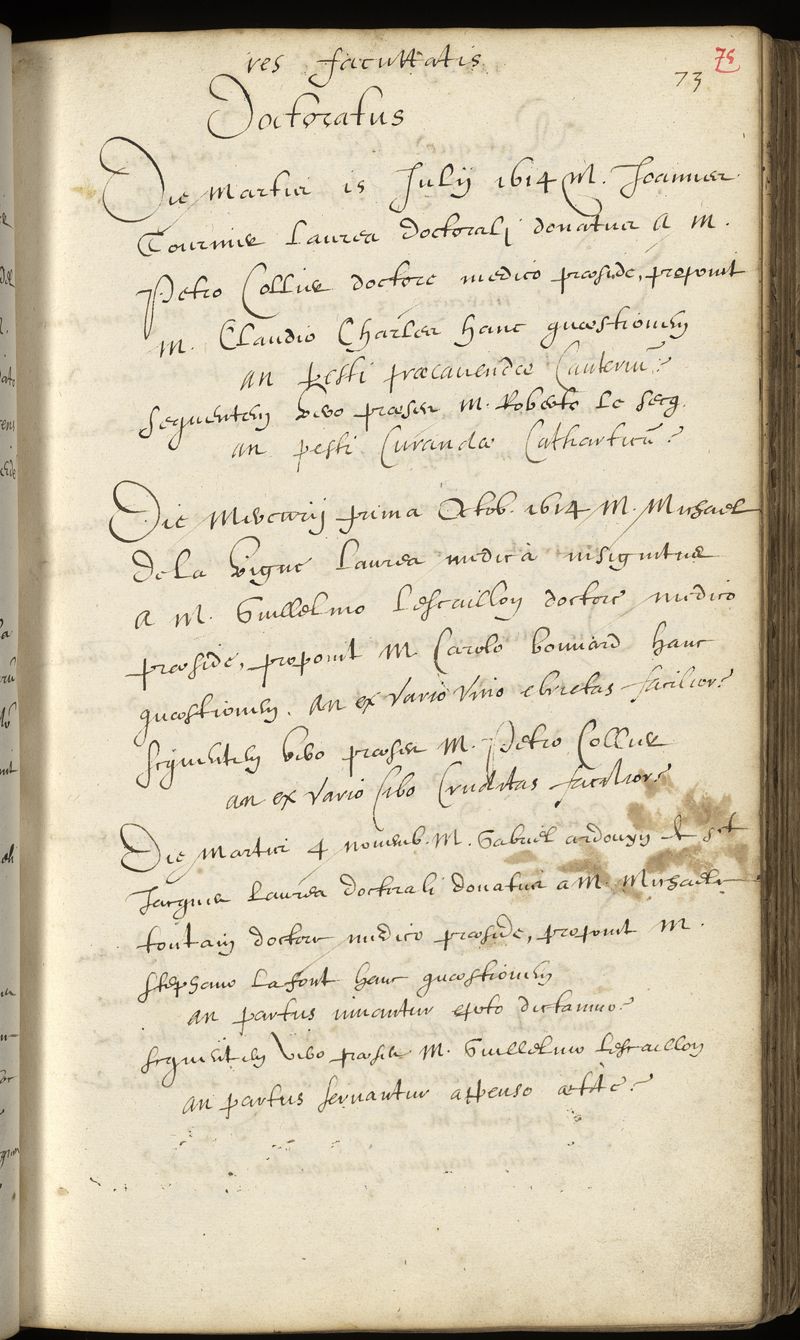 res facultatis
73
75
Doctoratus
Die Martis 15 Julii 1614 M. Joannes
Tournier Laurea doctorali donatur a M.
Petro Collier doctore medico præside, proponit
M. Claudio Charles hanc quæstionem
an pesti præcavendæ Cauteriū?
sequentem vero præses M. Roberto Le Secq.
an pesti Curandæ Catharticū?
Die Mercurii prima Octob. 1614 M. Michael
de La Vigne Laurea medicâ insignitur
a M. Guillelmo Lescaillon doctore medico
præside, proponit M. Carolo bouvard hanc
quæstionem. an ex vario vino ebrietas facilior?
sequentem vero præses M. Petro Collier
an ex vario Cibo Cruditas facilior?
Die Martis 4 novemb. M. Gabriel ardouyn de sct
Jacques Laurea doctorali donatur a M. Michaele
toutain doctore medico præside, proponit M.
stephano Lafont hanc quæstionem
an partus iuvantur epoto dictamno?
sequentem vero præses M. Guillelmo Lescaillon
an partus servantur appenso ætite?